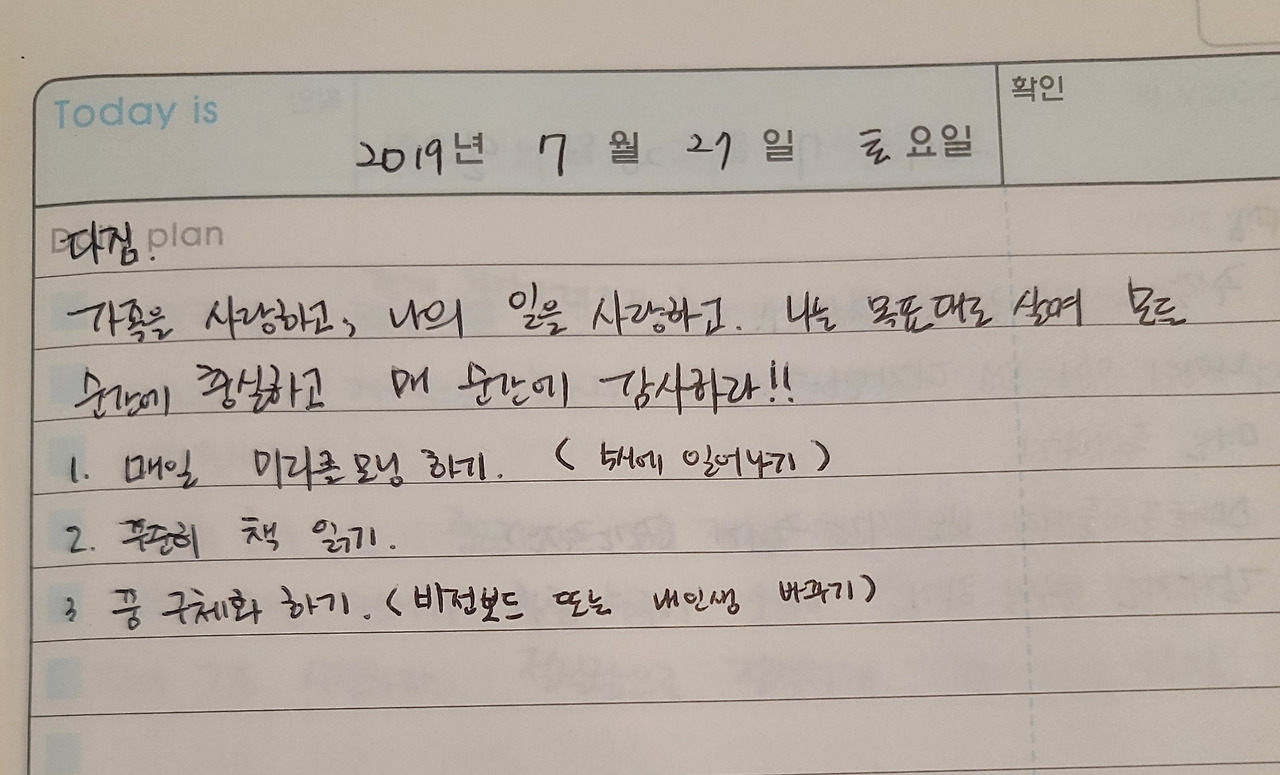 Today is
확인
2019년 7월 27일 토요일
다짐. plan
가족을 사랑하고, 나의 일을 사랑하고. 나는 목표대로 살며 모든
순간에 충실하고 매 순간에 감사하라!!
1. 매일 미라클모닝 하기. (5시에 일어나기)
2. 꾸준히 책 읽기.
3 꿈 구체화 하기. (비전보드 또는 내인생 바꾸기)